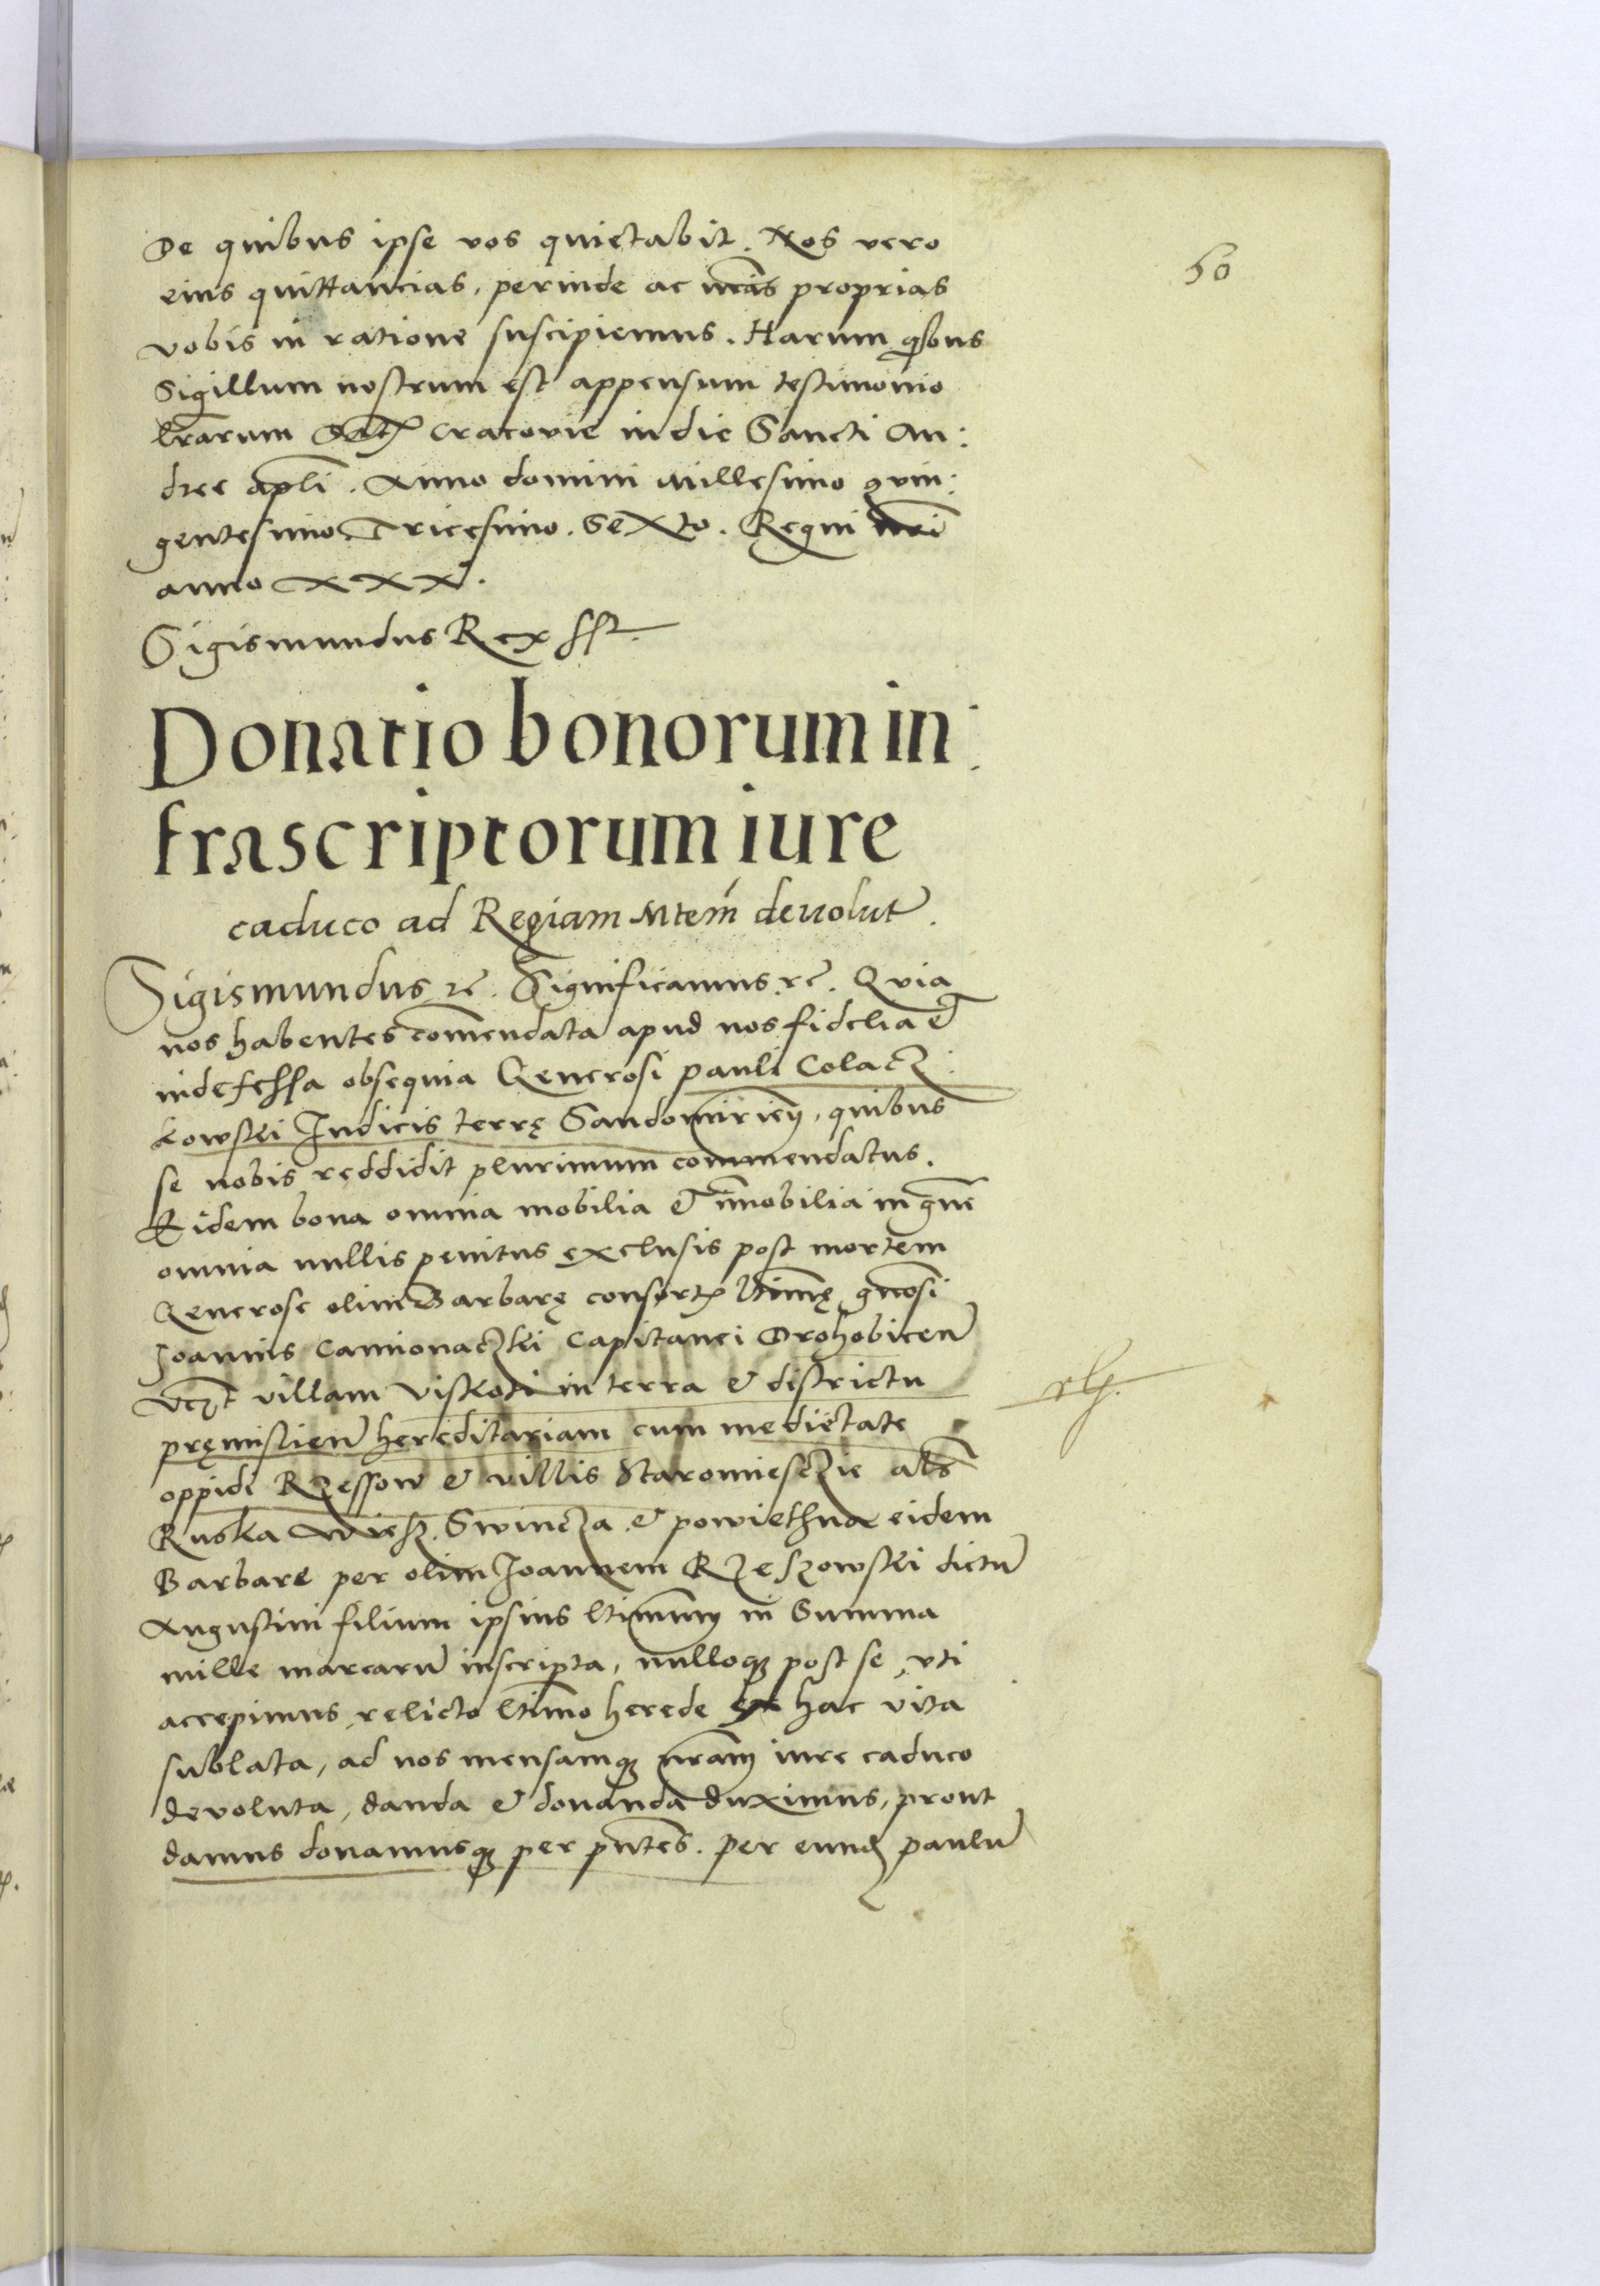 50
De quibus ipse vos quietabit. Nos vero
eius quittancias, perinde ac nr̃as proprias
vobis in ratione suscipiemus. Harum quibus
Sigillum nostrum est appensum testimonio
lr̃arum Dat Cracovie in die Sancti An:
dree apl̃i. Anno domini Millesimo quin:
gentesimo Tricesimo. Sexto. Regni nr̃i
anno XXX.
Sigismundus Rex sst
Donatio bonorum in:
frascriptorum iure
caduco ad Regiam Mtem̃ devolut.
Sigismundus rc̃. Significamus rc̃. Quia
nos habentes com̃endata apud nos fidelia et
indefessa obsequia Generosi Pauli Colacz:
kowski Iudicis terrę Sandomirien, quibus
se nobis reddidit plurimum commendatus.
Eidem bona omnia mobilia et im̃obilia in gn̄e
omnia nullis penitus exclusis post mortem
Generose olim Barbarę consort ltimę gn̄osi
Joannis Camionaczki Capitanei Drohobicen
vczt villam Viskoti in terra et districtu
pręmislien hereditariam cum medietate
oppidi Rzessow et villis Staromiesczie als̃
Ruska Wiesz. Swincza et powiethna eidem
Barbare per olim Joannem Rzeszowski dictu
Augustini filium ipsius ltimum in Summa
mille marcaru inscripta, nulloq post se, vti
accepimus, relicto ltimo herede ex hac vita
sublata, ad nos mensamq nr̃am iure caduco
devoluta, danda et donanda duximus, prout
damus donamusq per pn̄tes. per eund Paulu